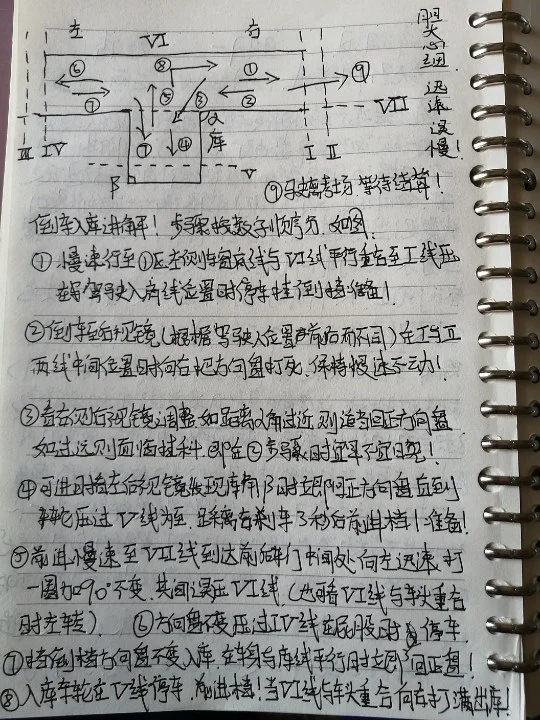 左 VI 右
⑥ ⑧ ① ⑨
⑦ ⑤ ③ ② VII
① ④ α 库
III IV I II
β V
胆大心细!
迅速误慢!
⑨驶离考场 等待结算!
倒车入库讲解! 步骤按数字顺序分,如图.
① 慢速行至①区左侧与窗底线与VI线平行重合至I线压
在驾驶人肩线位置时停车挂倒档准备!
②倒车至后视镜(根据驾驶人位置前后而不同)在I与II
两线中间位置时向右把方向盘打死.保持慢速不动!
③看右侧后视镜调整,如距离α角过近,则适当回正方向盘
如过远则面临挂科.即在②步骤时宜早不宜晚!
④可进时看左后视镜发现库角β时立即回正方向盘直到
车轮压过V线为至.踩离合刹车3秒后前进档!准备!
⑤前进慢速至VII线到达前车门中间处.向左迅速.打
一圈加90°不变.其间误压VI线.(也可看VI线与车头重合
时左转) ⑥方向盘不变压过IV线在屁股时停车.
⑦挂倒档方向盘不变入库.在车身与库线平行时立即回正盘!
⑧入库车轮在V线停车.前进档!当VI线与车头重合向右打满出库!